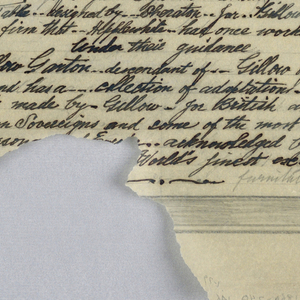 designed by - Sheraton - for - Gillow
firm that - Hepplewhite - has once work
under their guidance
low Ganton - descendant of - - Gillow
nd has a - - collection of adaptation
made by - Gillow - for British a
n Sovereigns and some of the most
son - acknowledged b
World's finest
furnitu